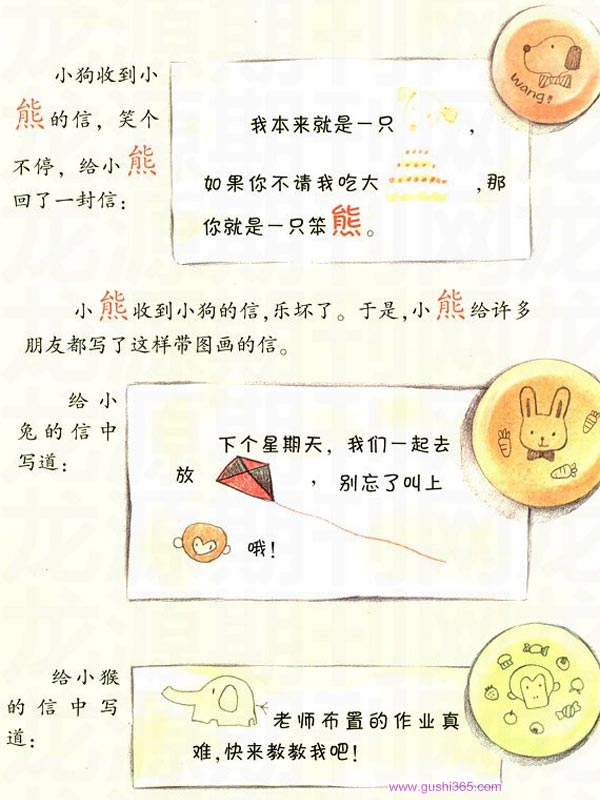 小狗收到小
熊的信，笑个
不停，给小熊
回了一封信：
wang!
我本来就是一只 ，
如果你不请我吃大 ，那
你就是一只笨熊。
小熊收到小狗的信，乐坏了。于是，小熊给许多
朋友都写了这样带图画的信。
给小
兔的信中
写道：
下个星期天，我们一起去
放 ，别忘了叫上
哦！
给小猴
的信中写
道：
老师布置的作业真
难，快来教教我吧！
www.gushi365.com